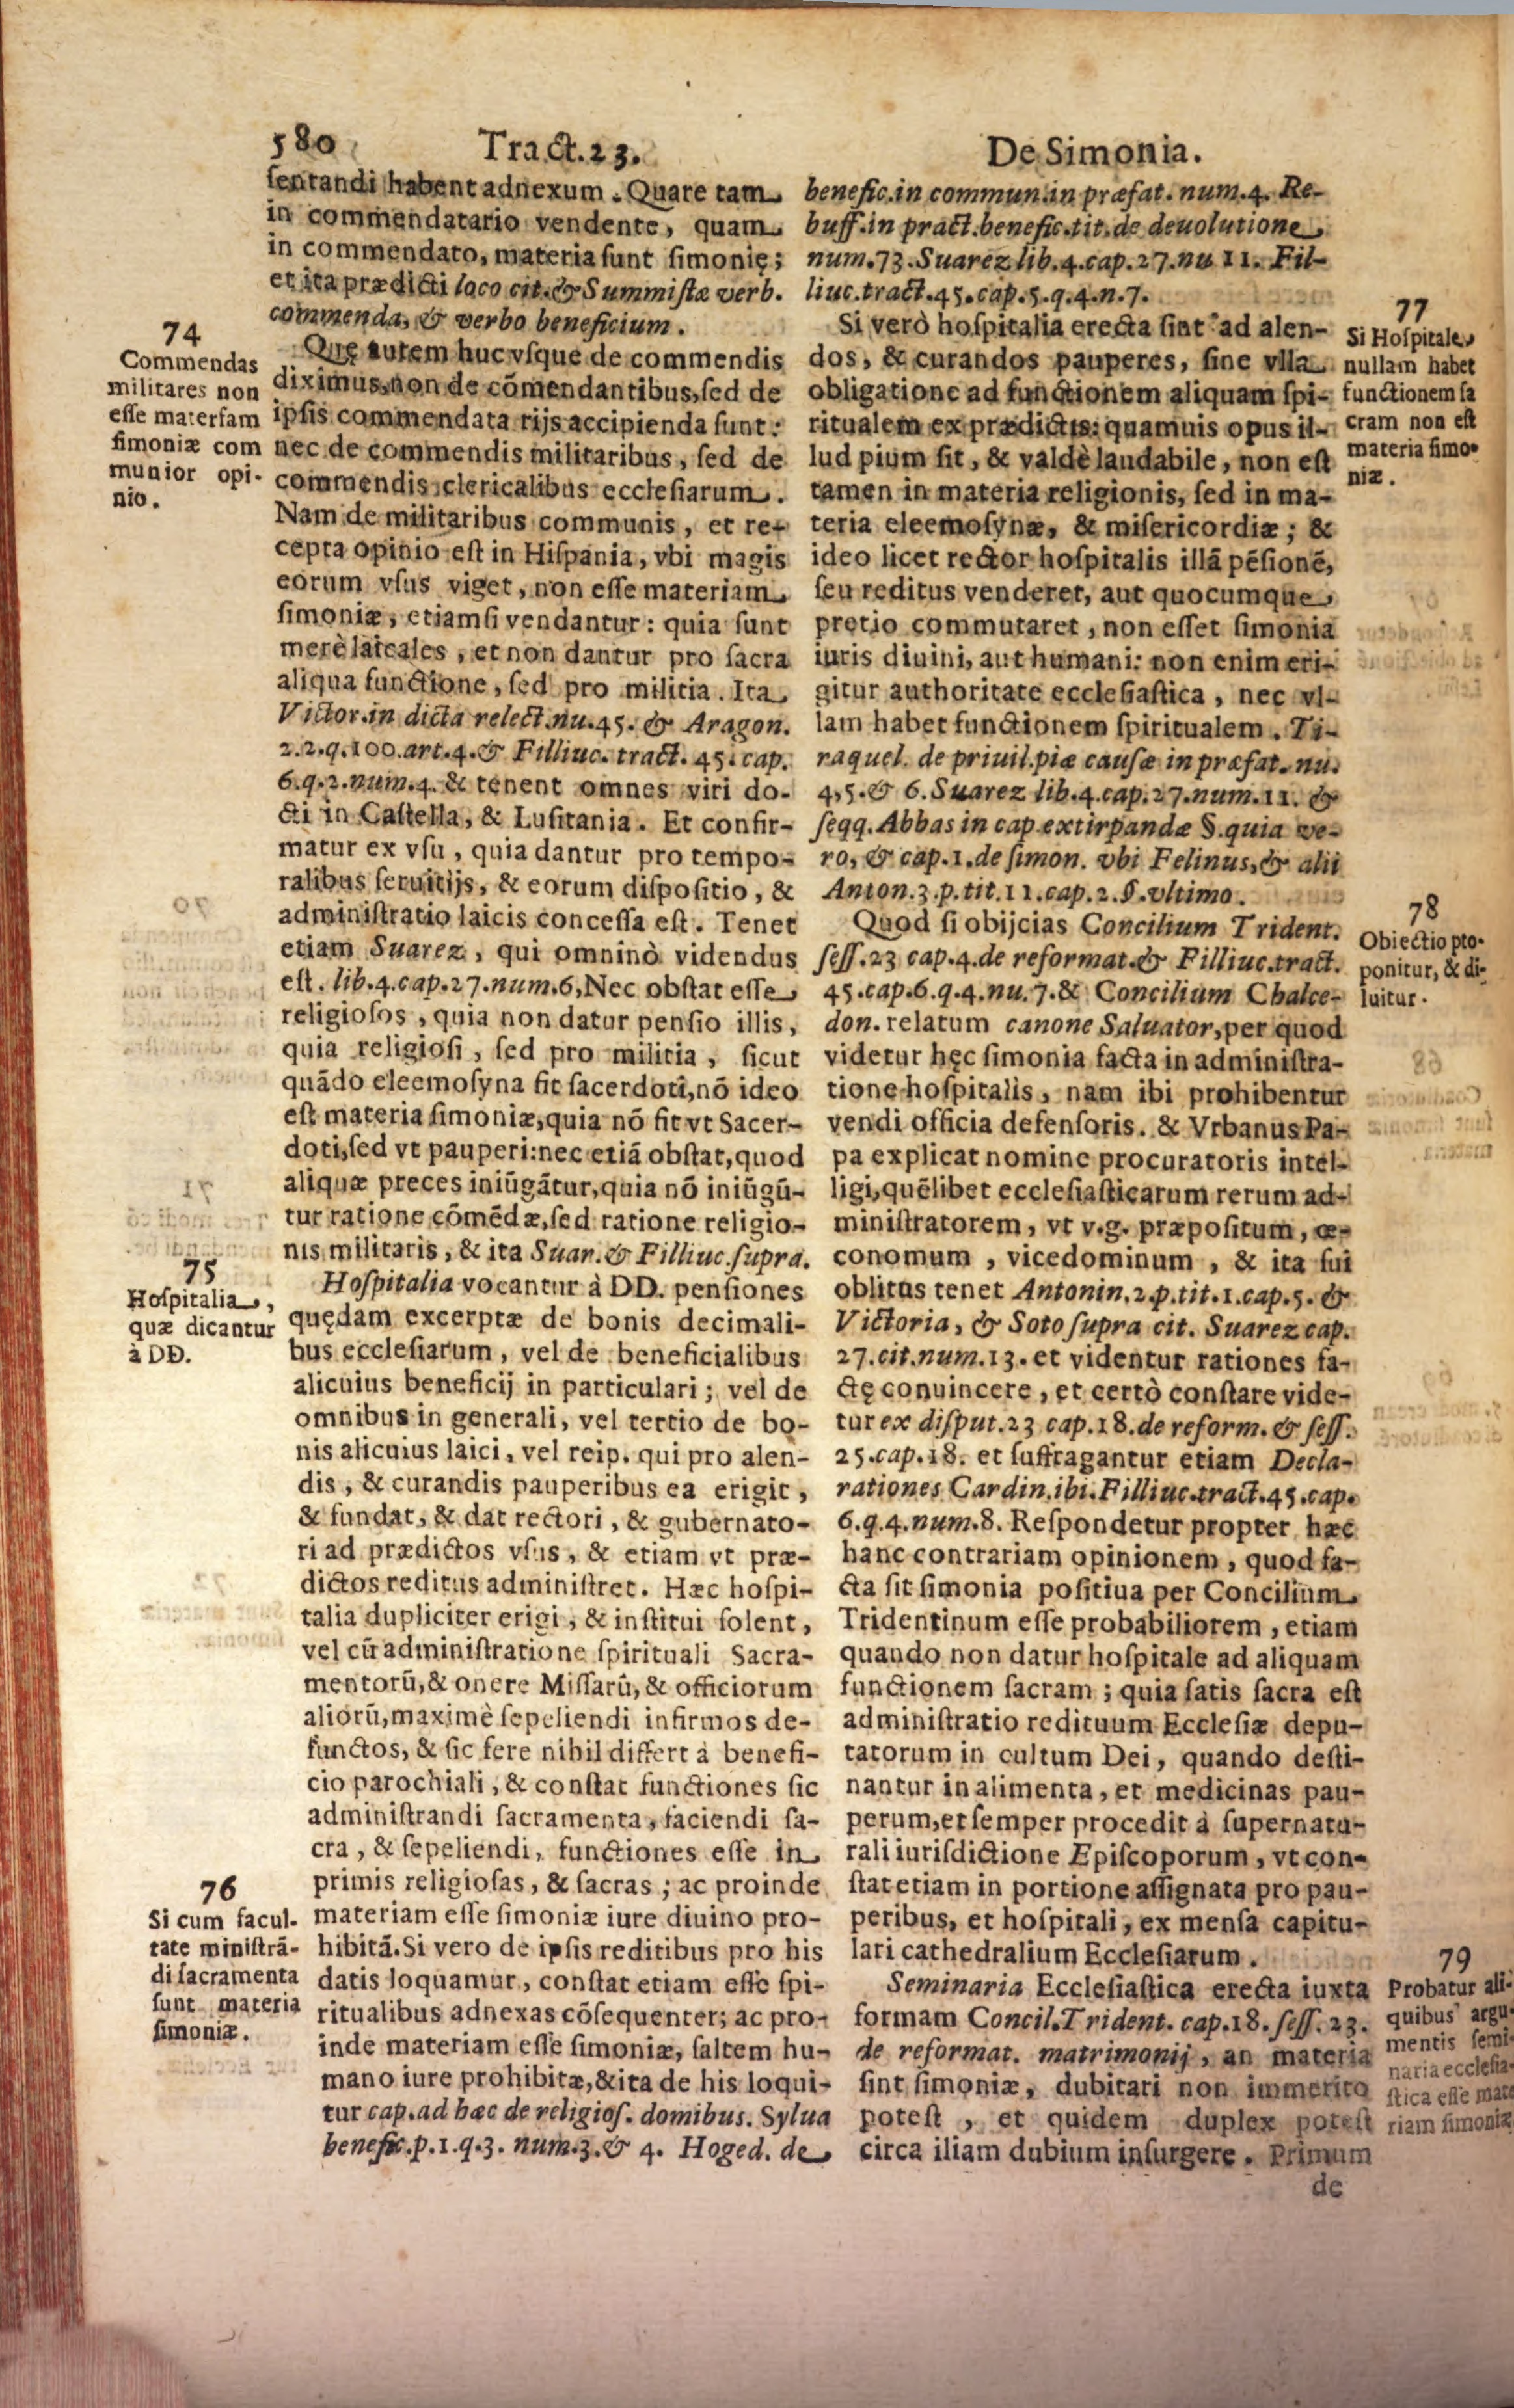 580 Tract. 23. De Simonia.
ſentandi habent adnexum. Quare tam
in commendatario vendente, quam
in commendato, materia ſunt ſimonię;
et ita prædicti loco cit. & Summiſtæ verb.
commenda, & verbo beneficium.
74
Commendas
militares non
eſſe materiam
ſimoniæ com
munior opi-
nio.
Quę autem huc vſque de commendis
diximus, non de cõmendantibus, ſed de
ipſis commendatarijs accipienda ſunt:
nec de commendis militaribus, ſed de
commendis clericalibus eccleſiarum.
Nam de militaribus communis, et re-
cepta opinio eſt in Hiſpania, vbi magis
eorum vſus viget, non eſſe materiam
ſimoniæ, etiamſi vendantur: quia ſunt
merè laicales, et non dantur pro ſacra
aliqua functione, ſed pro militia. Ita
Victor. in dicta relect. nu. 45. & Aragon.
2.2.q.100.art.4.& Filliuc. tract. 45. cap.
6.q.2.num.4. & tenent omnes viri do-
cti in Caſtella, & Luſitania. Et confir-
matur ex vſu, quia dantur pro tempo-
ralibus ſeruitijs, & eorum diſpoſitio, &
adminiſtratio laicis conceſſa eſt. Tenet
etiam Suarez, qui omninò videndus
eſt. lib.4.cap.27.num.6, Nec obſtat eſſe
religioſos, quia non datur penſio illis,
quia religioſi, ſed pro militia, ſicut
quãdo eleemoſyna fit ſacerdoti, nõ ideo
eſt materia ſimoniæ, quia nõ fit vt Sacer-
doti, ſed vt pauperi: nec etiã obſtat, quod
aliquæ preces iniũgãtur, quia nõ iniũgũ-
tur ratione cõmẽdæ, ſed ratione religio-
nis militaris, & ita Suar. & Filliuc. ſupra.
75
Hoſpitalia,
quæ dicantur
à DD.
Hoſpitalia vocantur à DD. penſiones
quędam excerptæ de bonis decimali-
bus eccleſiarum, vel de beneficialibus
alicuius beneficij in particulari; vel de
omnibus in generali, vel tertio de bo-
nis alicuius laici, vel reip. qui pro alen-
dis, & curandis pauperibus ea erigit,
& fundat, & dat rectori, & gubernato-
ri ad prædictos vſus, & etiam vt præ-
dictos reditus adminiſtret. Hæc hoſpi-
talia dupliciter erigi, & inſtitui ſolent,
vel cũ adminiſtratione ſpirituali Sacra-
mentorũ, & onere Miſſarũ, & officiorum
aliorũ, maximè ſepeliendi infirmos de-
functos, & ſic fere nihil differt à benefi-
cio parochiali, & conſtat functiones ſic
adminiſtrandi ſacramenta, faciendi ſa-
cra, & ſepeliendi, functiones eſſe in
primis religioſas, & ſacras; ac proinde
76
Si cum facul-
tate miniſtrã-
di ſacramenta
ſunt materia
ſimoniæ.
materiam eſſe ſimoniæ iure diuino pro-
hibitã. Si vero de ipſis reditibus pro his
datis loquamur, conſtat etiam eſſe ſpi-
ritualibus adnexas cõſequenter; ac pro-
inde materiam eſſe ſimoniæ, ſaltem hu-
mano iure prohibitæ, & ita de his loqui-
tur cap. ad hæc de religioſ. domibus. Sylua
benefic.p.1.q.3. num.3.& 4. Hoged. de
benefic. in commun. in præfat. num. 4. Re-
buff. in pract. benefic. tit. de deuolutione
num. 73. Suarez lib. 4. cap. 27. nu 11. Fil-
liuc. tract. 45. cap. 5. q. 4. n. 7.
77
Si Hoſpitale
nullam habet
functionem ſa
cram non eſt
materia ſimo-
niæ.
Si verò hoſpitalia erecta ſint ad alen-
dos, & curandos pauperes, ſine vlla
obligatione ad functionem aliquam ſpi-
ritualem ex prædictis: quamuis opus il-
lud pium ſit, & valdè laudabile, non eſt
tamen in materia religionis, ſed in ma-
teria eleemoſynæ, & miſericordiæ; &
ideo licet rector hoſpitalis illã pẽſionẽ,
ſeu reditus venderet, aut quocumque
pretio commutaret, non eſſet ſimonia
iuris diuini, aut humani: non enim eri-
gitur authoritate eccleſiaſtica, nec vl-
lam habet functionem ſpiritualem. Ti-
raquel. de priuil. piæ cauſæ in præfat. nu.
4, 5. & 6. Suarez lib. 4. cap. 27. num. 11. &
ſeqq. Abbas in cap extirpandæ §. quia ve-
ro, & cap. 1. de ſimon. vbi Felinus, & alii
Anton. 3. p. tit. 11. cap. 2. §. vltimo.
78
Obiectio pro-
ponitur, & di-
luitur.
Quod ſi obijcias Concilium Trident.
ſeſſ. 23 cap. 4. de reformat. & Filliuc. tract.
45. cap. 6. q. 4. nu. 7. & Concilium Chalce-
don. relatum canone Saluator, per quod
videtur hęc ſimonia facta in adminiſtra-
tione hoſpitalis, nam ibi prohibentur
vendi officia defenſoris. & Vrbanus Pa-
pa explicat nomine procuratoris intel-
ligi, quẽlibet eccleſiaſticarum rerum ad-
miniſtratorem, vt v.g. præpoſitum, œ-
conomum, vicedominum, & ita ſui
oblitus tenet Antonin. 2. p. tit. 1. cap. 5. &
Victoria, & Soto ſupra cit. Suarez cap.
27. cit. num. 13. et videntur rationes fa-
ctę conuincere, et certò conſtare vide-
tur ex diſput. 23 cap. 18. de reform. & ſeſſ.
25. cap. 18. et ſuffragantur etiam Decla-
rationes Cardin. ibi. Filliuc. tract. 45. cap.
6. q. 4. num. 8. Reſpondetur propter hæc
hanc contrariam opinionem, quod fa-
cta ſit ſimonia poſitiua per Concilium
Tridentinum eſſe probabiliorem, etiam
quando non datur hoſpitale ad aliquam
functionem ſacram; quia ſatis ſacra eſt
adminiſtratio redituum Eccleſiæ depu-
tatorum in cultum Dei, quando deſti-
nantur in alimenta, et medicinas pau-
perum, et ſemper procedit à ſupernatu-
rali iuriſdictione Epiſcoporum, vt con-
ſtat etiam in portione aſſignata pro pau-
peribus, et hoſpitali, ex menſa capitu-
lari cathedralium Eccleſiarum.
79
Probatur ali-
quibus argu-
mentis ſemi-
naria eccleſia-
ſtica eſſe mate
riam ſimoniæ
Seminaria Eccleſiaſtica erecta iuxta
formam Concil. Trident. cap. 18. ſeſſ. 23.
de reformat. matrimonij, an materia
ſint ſimoniæ, dubitari non immerito
poteſt, et quidem duplex poteſt
circa illam dubium inſurgere. Primum
de